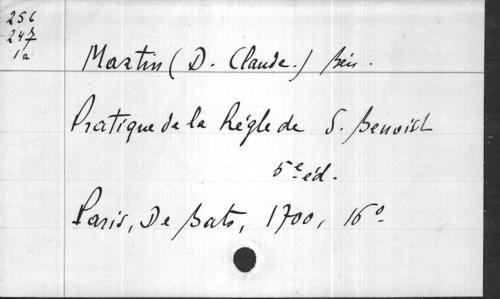 256
247
1a
Martin (D. Claude.) Bén.
Pratique de la Règle de S. Benoist
5e éd.
Paris, De Bats, 1700, 16o.